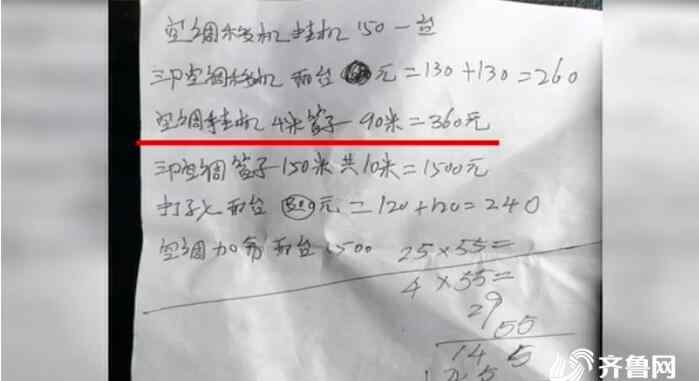 空调移机挂机150一台
三P空调移机 两台 元=130+130=260
空调挂机4米管子一90米=360元
三P空调管子150米共10米=1500元
打孔 两台 元=120+120=240
空调加氟两台 500
25×55=
4×55=
29
55
14 5
齐鲁网